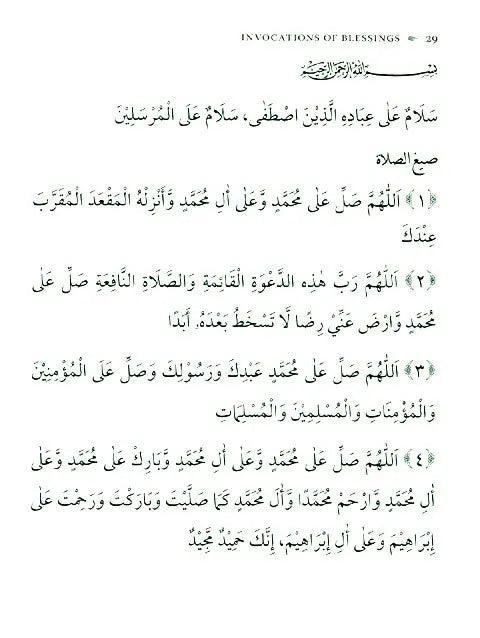 INVOCATIONS OF BLESSINGS 29
بِسْمِ اللهِ الرَّحْمٰنِ الرَّحِيْمِ
سَلَامٌ عَلٰى عِبَادِهِ الَّذِيْنَ اصْطَفٰى، سَلَامٌ عَلَى الْمُرْسَلِيْنَ
صيغ الصلاة
﴿١﴾ اَللّٰهُمَّ صَلِّ عَلٰى مُحَمَّدٍ وَّعَلٰى أٰلِ مُحَمَّدٍ وَّأَنْزِلْهُ الْمَقْعَدَ الْمُقَرَّبَ
عِنْدَكَ
﴿٢﴾ اَللّٰهُمَّ رَبَّ هٰذِهِ الدَّعْوَةِ الْقَائِمَةِ وَالصَّلَاةِ النَّافِعَةِ صَلِّ عَلٰى
مُحَمَّدٍ وَّارْضَ عَنِّيْ رِضًا لَّا تَسْخَطُ بَعْدَهُ، أَبَدًا
﴿٣﴾ اَللّٰهُمَّ صَلِّ عَلٰى مُحَمَّدٍ عَبْدِكَ وَرَسُوْلِكَ وَصَلِّ عَلَى الْمُؤْمِنِيْنَ
وَالْمُؤْمِنَاتِ وَالْمُسْلِمِيْنَ وَالْمُسْلِمَاتِ
﴿٤﴾ اَللّٰهُمَّ صَلِّ عَلٰى مُحَمَّدٍ وَّعَلٰى أٰلِ مُحَمَّدٍ وَّبَارِكْ عَلٰى مُحَمَّدٍ وَّعَلٰى
أٰلِ مُحَمَّدٍ وَّارْحَمْ مُحَمَّدًا وَّأٰلَ مُحَمَّدٍ كَمَا صَلَّيْتَ وَبَارَكْتَ وَرَحِمْتَ عَلٰى
إِبْرَاهِيْمَ وَعَلٰى أٰلِ إِبْرَاهِيْمَ، إِنَّكَ حَمِيْدٌ مَّجِيْدٌ